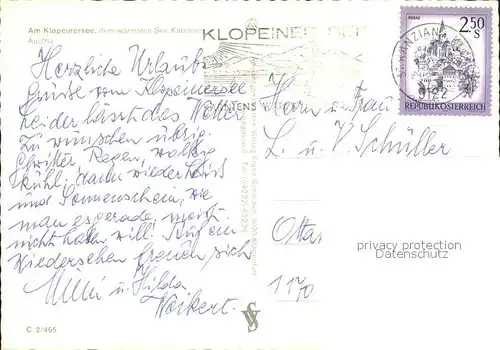 Am Klopeinersee, dem wärmsten See Kärntens
Austria
Herzliche Urlaubs
Grüße vom Klopeinersee
Leider lässt das Wetter
zu wünschen übrig.
Gewitter, Regen, wolkig
kühl, dann wieder heiß
und Sonnenschein, wie
man es gerade meist
nicht haben will. Auf ein
Wiedersehen freuen sich
Willi u. Hilda
Weikert.
C 2/465
KLOPEINER SEE
KÄRNTENS
MURAU
2.50
S
REPUBLIK ÖSTERREICH
ST. KANZIAN
9122
Herrn u. Frau
L. u. V. Schüller
Otta
1170
privacy protection
Datenschutz